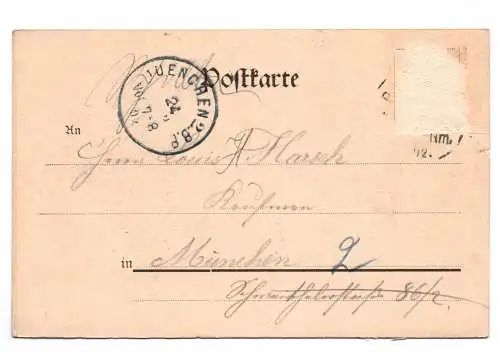 Postkarte
MUENCHEN 2.B.P.
24
7-8
Nm.
An
Herrn Louis Harsch
Kaufman
in München 2
Schwanthalerstraße 86/2